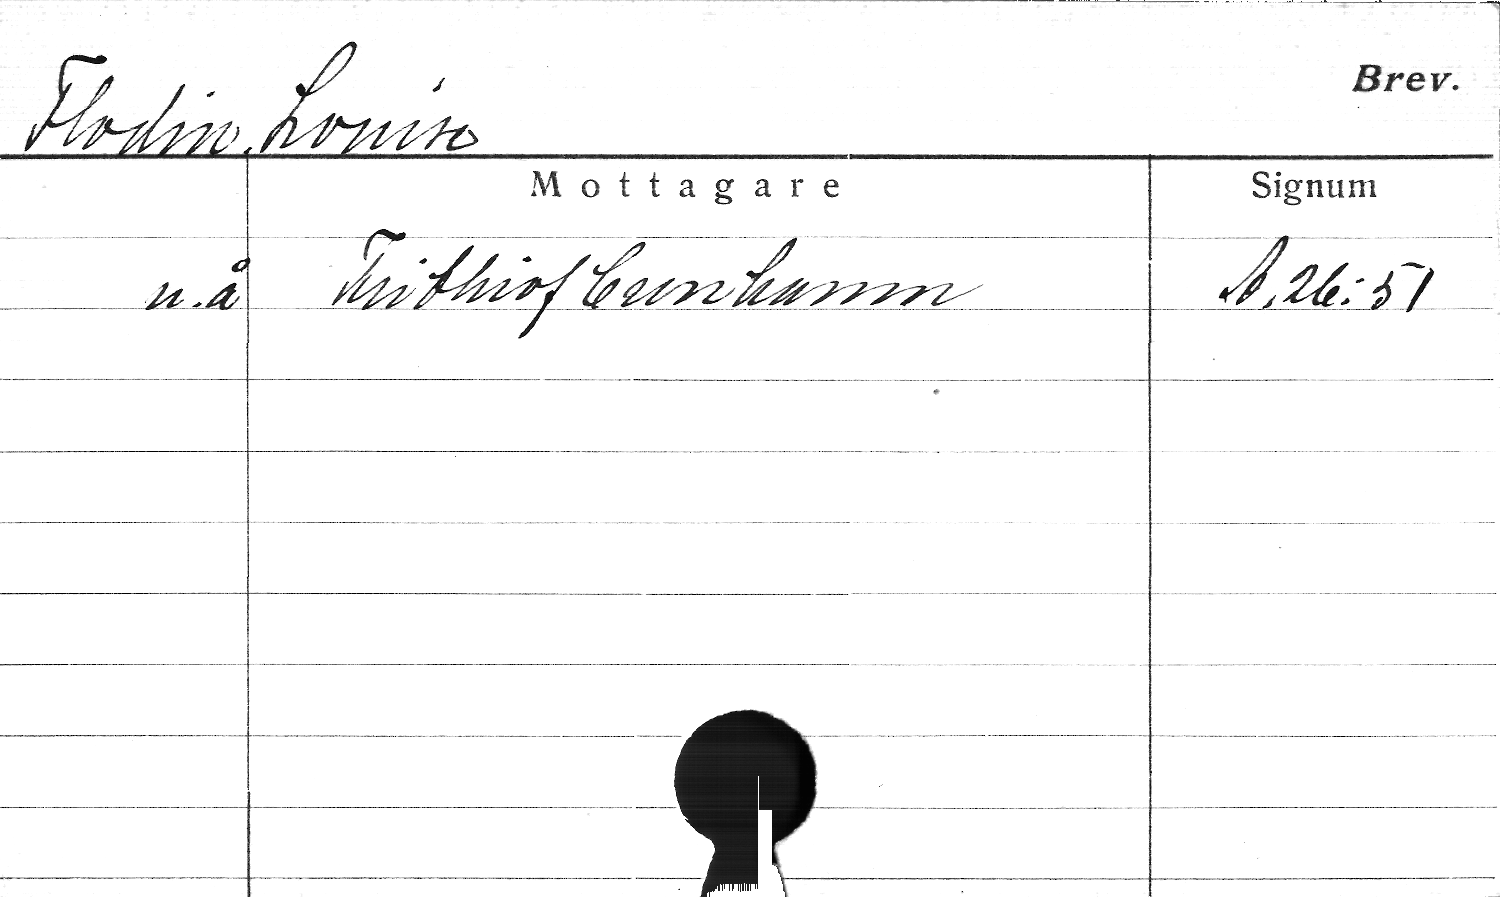 Flodin, Louise
Brev.
Mottagare
Signum
u.å Frithiof Cronhamm A.26:51